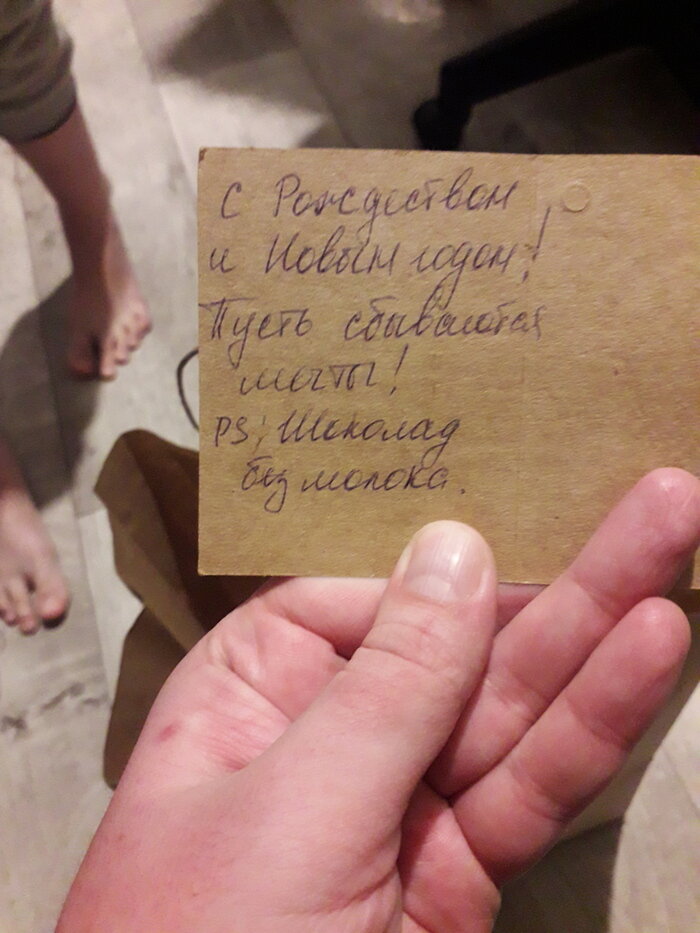 С Рождеством
и Новым годом!
Пусть сбываются
мечты!
PS: Шоколад
без молока.